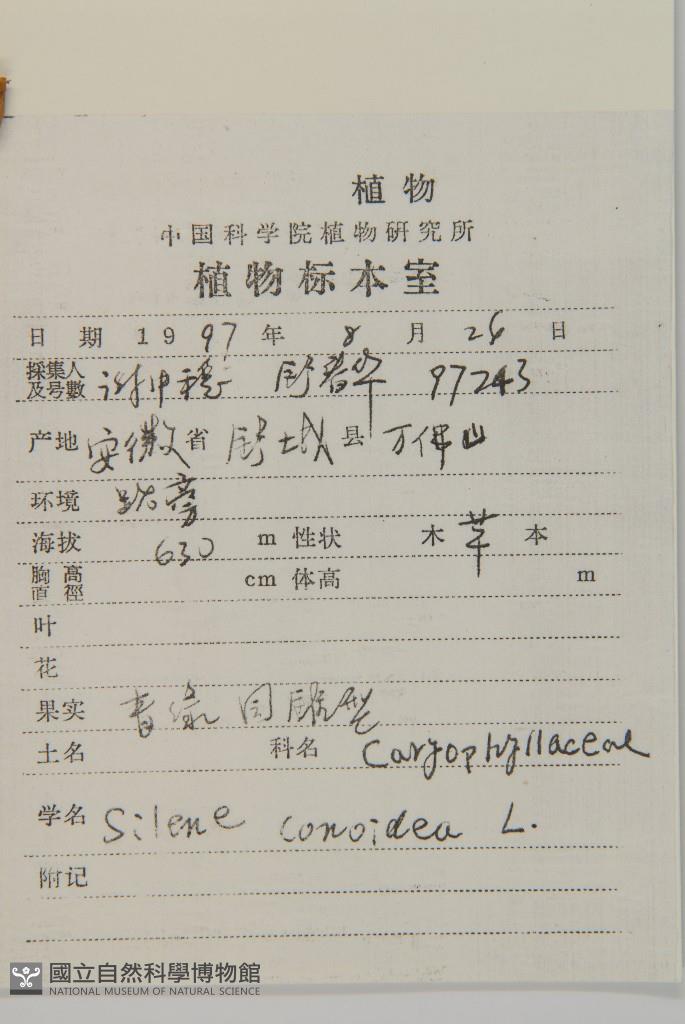 植物
中国科学院植物研究所
植物标本室
日 期 1997 年 8 月 26 日
採集人及号數 97243
产地 安徽 省 舒城 县 万佛山
环境 路旁
海拔 630 m 性状 木 草 本
胸高直徑 cm 体高 m
叶
花
果实 青绿
土名 科名 Caryophyllaceae
学名 Silene conoidea L.
附记
國立自然科學博物館
NATIONAL MUSEUM OF NATURAL SCIENCE